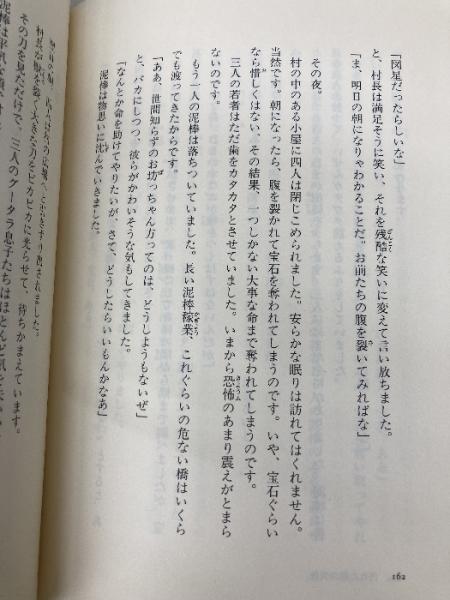 「図星だったらしいな」
と、村長は満足そうに笑い、それを残酷な笑いに変えて言い放ちました。
「ま、明日の朝になりゃわかることだ。お前たちの腹を裂いてみればな」
その夜。
村の中のある小屋に四人は閉じこめられました。安らかな眠りは訪れてはくれません。
当然です。朝になったら、腹を裂かれて宝石を奪われてしまうのです。いや、宝石ぐらい
なら惜しくはない、その結果、一つしかない大事な命まで奪われてしまうのです。
三人の若者はただ歯をカタカタとさせていました。いまから恐怖のあまり震えがとまら
ないのです。
もう一人の泥棒は落ちついていました。長い泥棒稼業、これぐらいの危ない橋はいくら
でも渡ってきたからです。
「ああ、世間知らずのお坊っちゃん方ってのは、どうしようもないぜ」
と、バカにしつつ、彼らがかわいそうな気もしてきました。
「なんとか命を助けてやりたいが、さて、どうしたらいいもんかなあ」
泥棒は物思いに沈んでいきました。
村長が刀を大きな刀をピカピカに光らせて、待ちかまえています。
その刀を見ただけで、三人のグータラ息子たちはほとんど気を
162